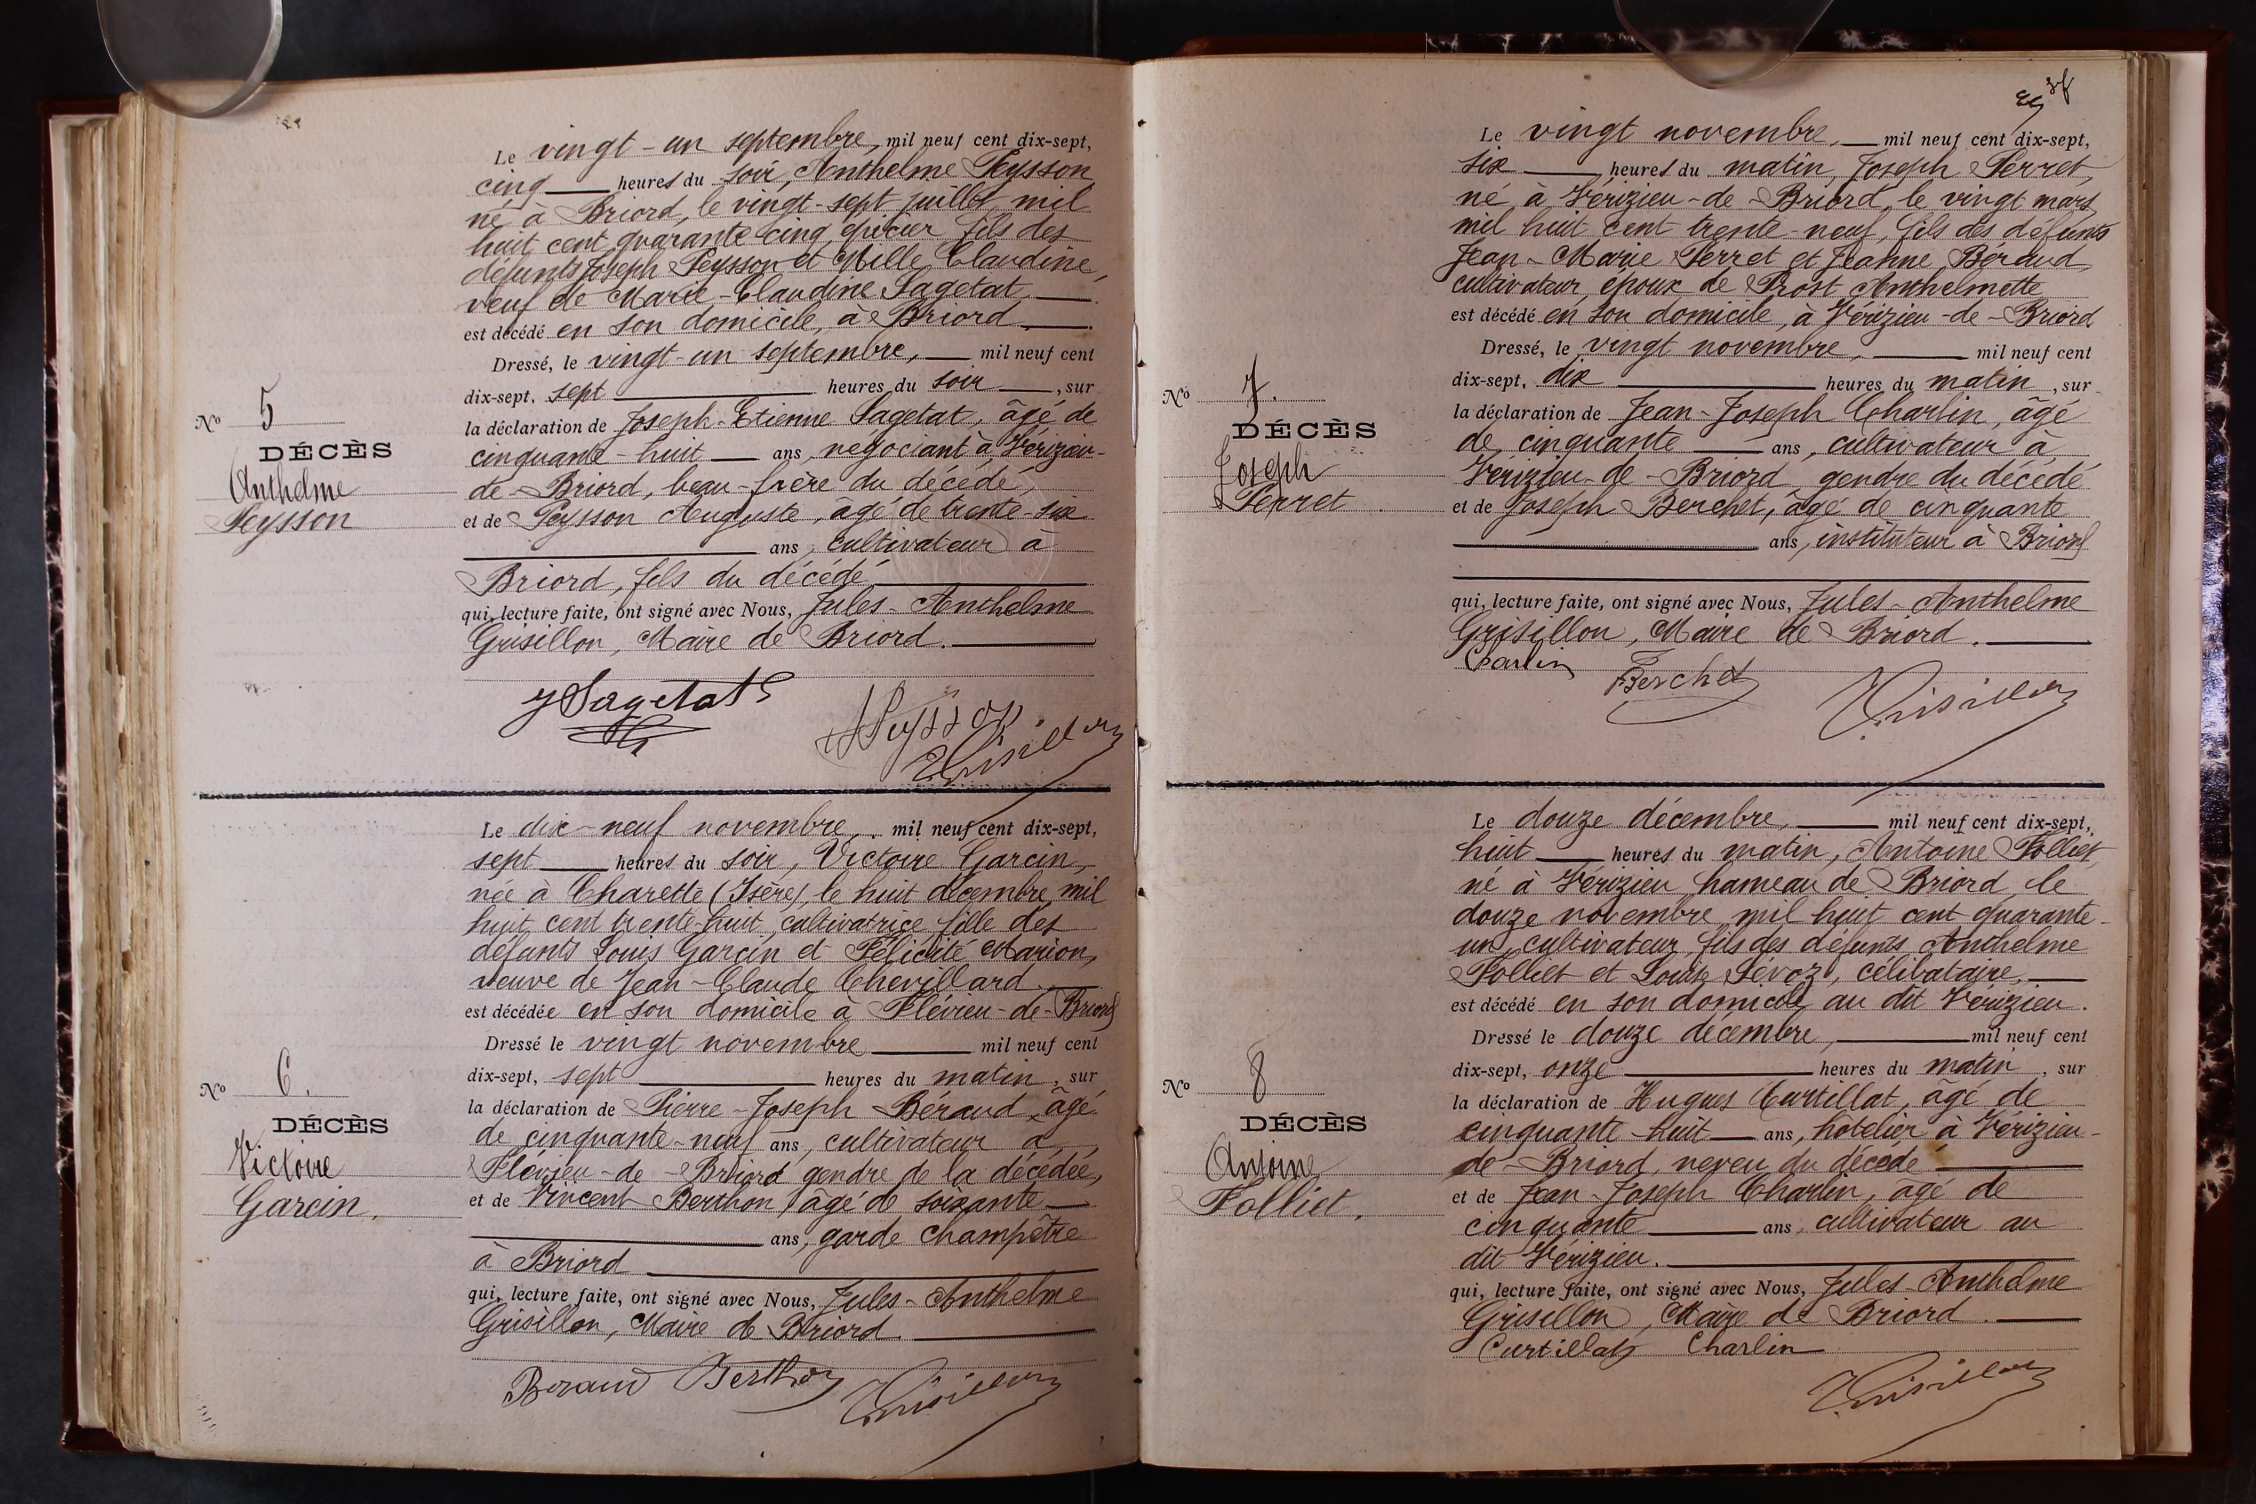 Le vingt-un septembre, mil neuf cent dix-sept,
cinq heures du soir, Anthelme Peysson
né à Briord, le vingt-sept juillet mil
huit cent quarante cinq, épicier fils des
défunts Joseph Peysson et Mille Claudine,
veuf de Marie-Claudine Sagetat
est décédé en son domicile, à Briord.
Dressé, le vingt-un septembre, mil neuf cent
dix-sept, sept heures du soir, sur
la déclaration de Joseph-Etienne Sagetat, âgé de
cinquante-huit ans, négociant à Vérizieu-
de-Briord, beau-frère du décédé,
et de Peysson Auguste, âgé de trente-six
ans, cultivateur à
Briord, fils du décédé
qui, lecture faite, ont signé avec Nous, Jules-Anthelme
Grisillon, Maire de Briord.
J Sagetat
Peysson
Grisillon
No 5
DÉCÈS
Anthelme
Peysson
Le dix-neuf novembre, mil neuf cent dix-sept,
sept heures du soir, Victoire Garcin,
née à Charette (Isère), le huit décembre mil
huit cent trente-huit, cultivatrice fille des
défunts Louis Garcin et Félicité Marion,
veuve de Jean-Claude Chevillard
est décédée en son domicile à Flévieu-de-Briord
Dressé le vingt novembre mil neuf cent
dix-sept, sept heures du matin, sur
la déclaration de Pierre-Joseph Béraud, âgé
de cinquante-neuf ans, cultivateur à
Flévieu-de-Briord gendre de la décédée,
et de Vincent Berthon, âgé de soixante
ans, garde champêtre
à Briord
qui, lecture faite, ont signé avec Nous, Jules-Anthelme
Grisillon, Maire de Briord.
Beraud Berthon Grisillon
No 6.
DÉCÈS
Victoire
Garcin.
Le vingt novembre, mil neuf cent dix-sept,
six heures du matin, Joseph Perret,
né à Vérizieu-de-Briord, le vingt mars
mil huit cent trente-neuf, fils des défunts
Jean-Marie Perret et Jeanne Béraud,
cultivateur, époux de Prost Anthelmette
est décédé en son domicile, à Vérizieu-de-Briord
Dressé, le vingt novembre, mil neuf cent
dix-sept, dix heures du matin, sur
la déclaration de Jean-Joseph Charlin, âgé
de cinquante ans, cultivateur à
Vérizieu-de-Briord, gendre du décédé
et de Joseph Berchet, âgé de cinquante
ans, instituteur à Briord
qui, lecture faite, ont signé avec Nous, Jules-Anthelme
Grisillon, Maire de Briord.
Charlin Berchet Grisillon
No 7.
DÉCÈS
Joseph
Perret
Le douze décembre, mil neuf cent dix-sept,
huit heures du matin, Antoine Folliet,
né à Vérizieu hameau de Briord, le
douze novembre mil huit cent quarante-
un, cultivateur, fils des défunts Anthelme
Folliet et Louise Sévoz, célibataire,
est décédé en son domicile au dit Vérizieu.
Dressé le douze décembre, mil neuf cent
dix-sept, onze heures du matin, sur
la déclaration de Hugues Curtillat, âgé de
cinquante-huit ans, hôtelier à Vérizieu-
de-Briord, neveu du décédé
et de Jean-Joseph Charlin, âgé de
cinquante ans, cultivateur au
dit Vérizieu.
qui, lecture faite, ont signé avec Nous, Jules-Anthelme
Grisillon, Maire de Briord.
Curtillat Charlin
Grisillon
No 8
DÉCÈS
Antoine
Folliet.